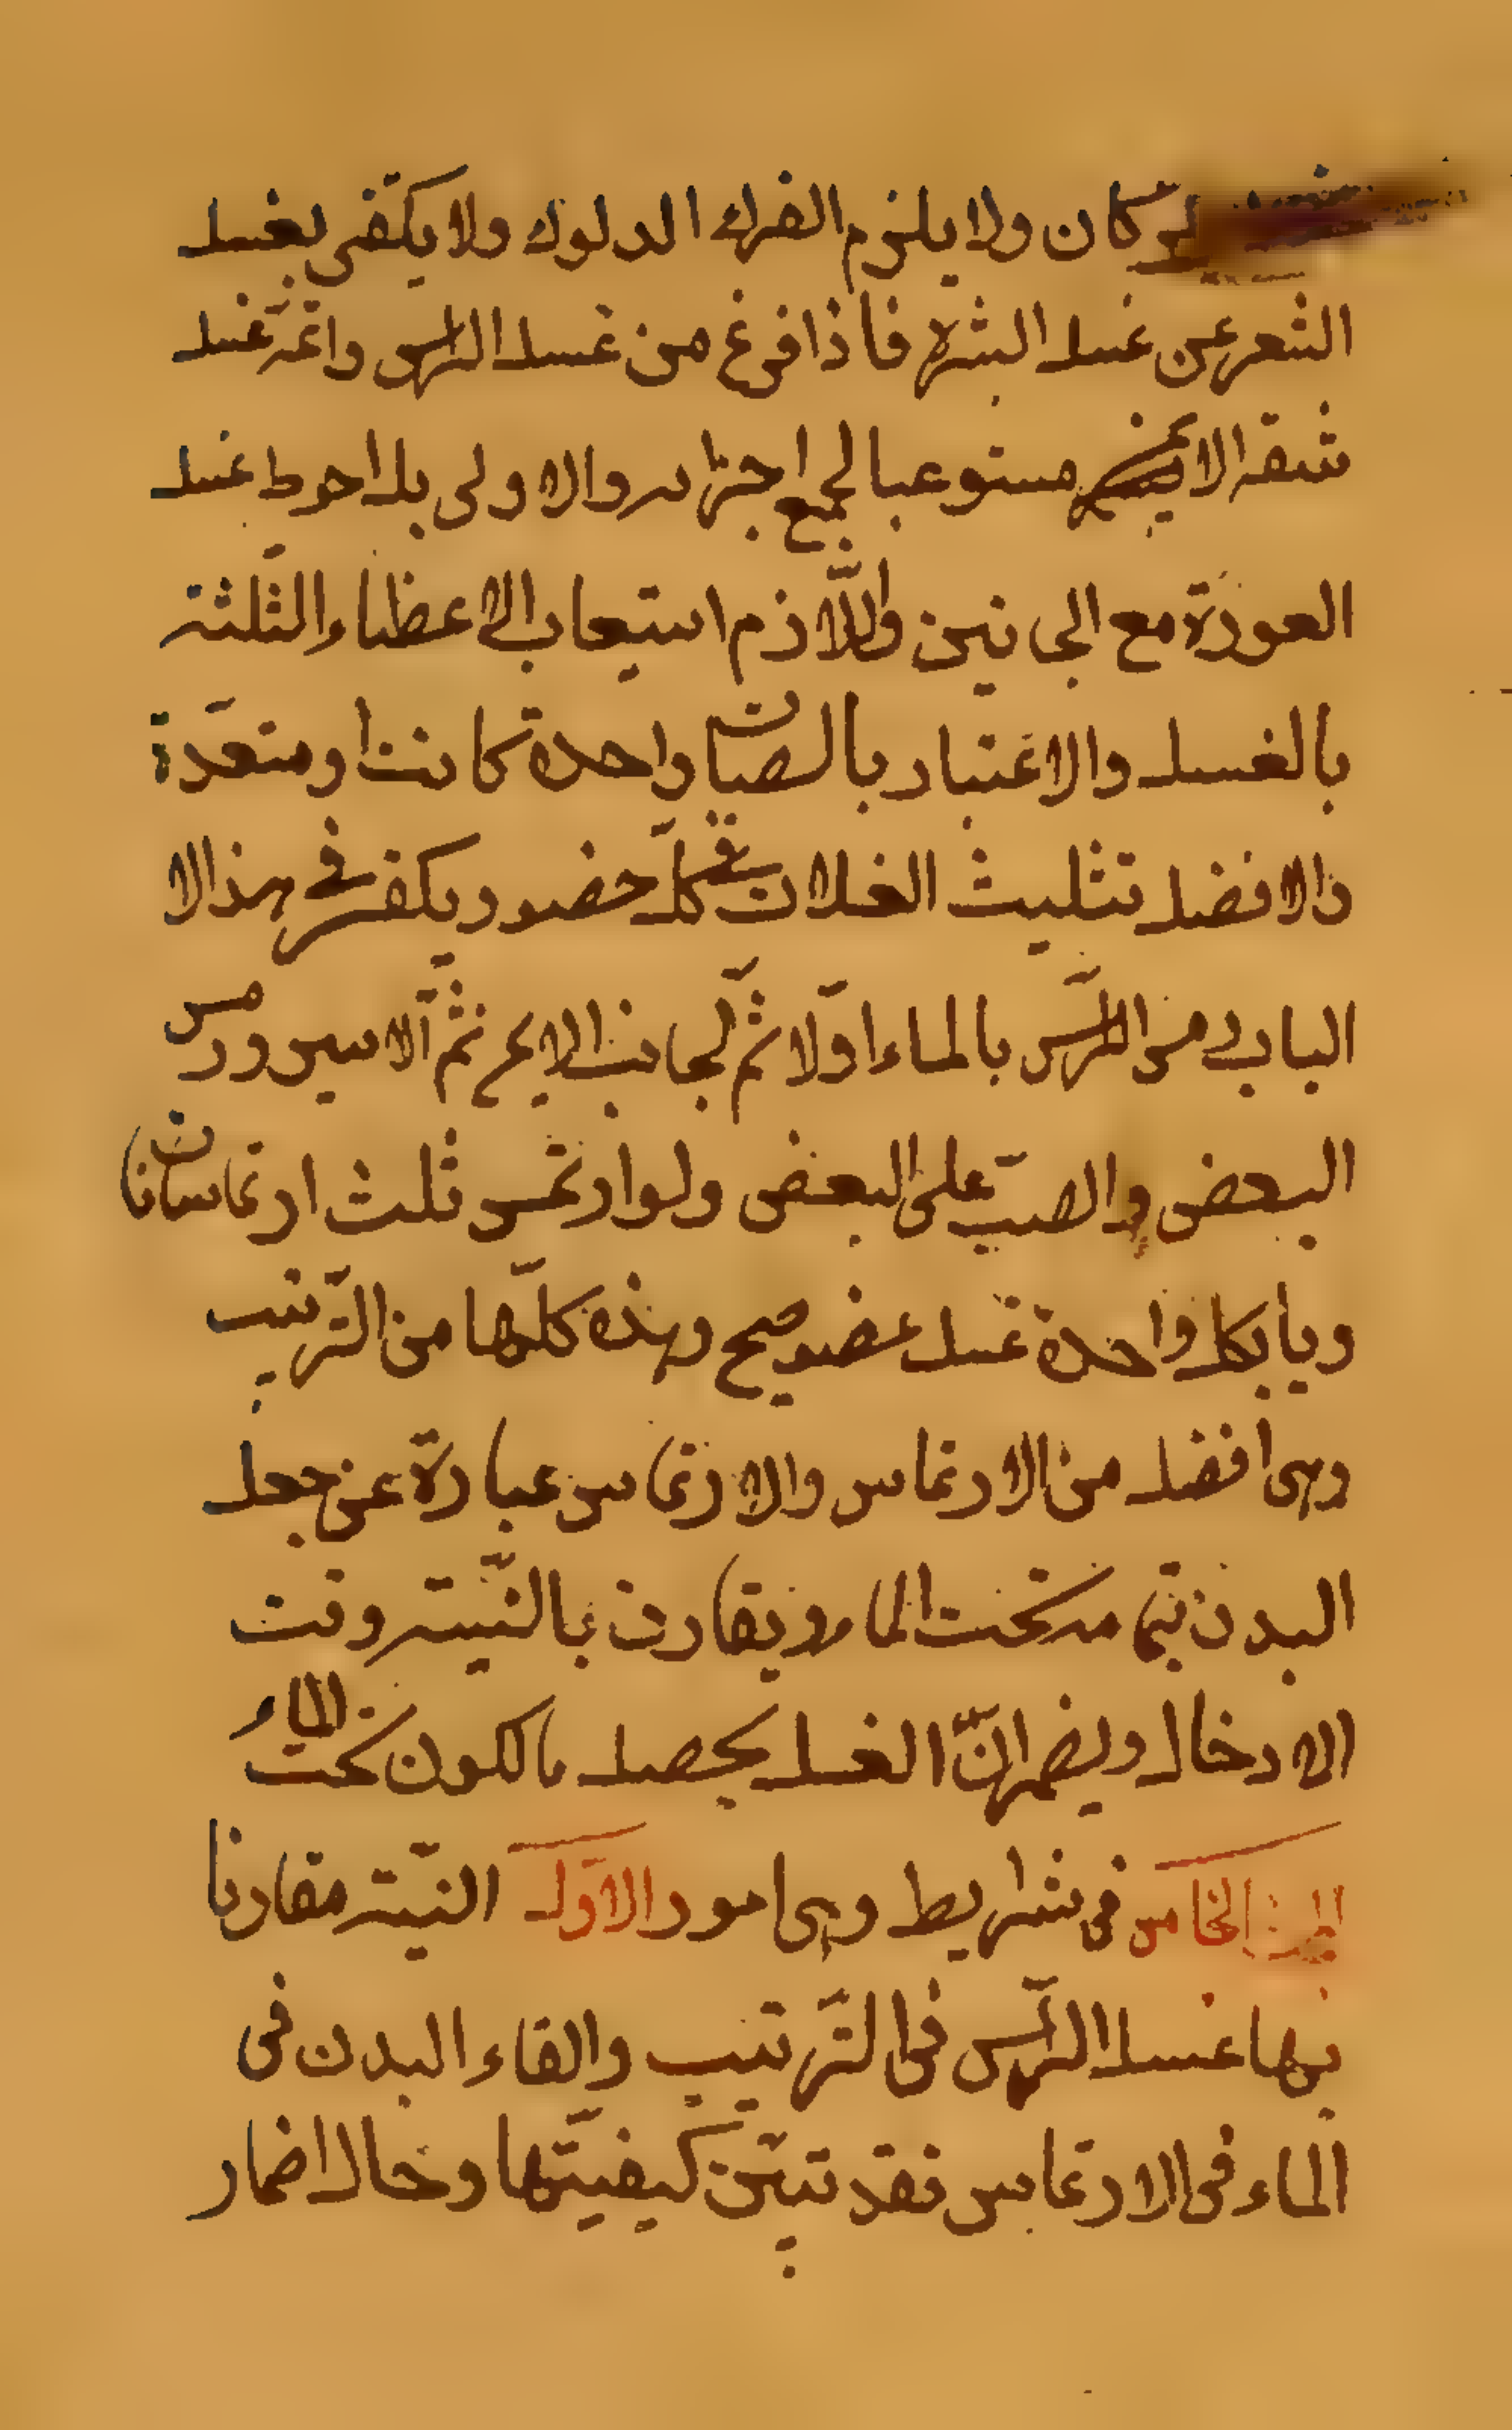 كان ولا يلزم الفرك الدلوك ولا يكفى بغسل
الشعر عن غسل البشرة فاذا فرغ من غسل الراس واتمه غسل
شقه الايمن مستوعبا لجميع اجزائه والاولى بل احوط غسل
العورة مع الجانبين واللازم استيعاب الاعضاء الثلثة
بالغسل والاعتبار بالصبات واحدة كانت او متعددة
والافضل تثليث الغسلات فى كل عضو ويكفى فى هذا
الباب مس الراس بالماء اولا ثم لجانب الايمن ثم الايسر ومس
البعض والصب على البعض ولو ارتمس ثلث ارتماسات
وياتى بكل واحدة غسل عضو صح وهذه كلها من الترتيب
وهى افضل من الارتماس والارتماس عبارة عن جعل
البدن بتمامه تحت الماء ويقارن بالنية وقت
الادخال ويضمر ان الغسل يحصل بالكون تحت الماء
المبحث الخامس فى شرايط وهى امور الاول النية مقارنا
بها غسل الراس فى الترتيب والقاء البدن فى
الماء فى الارتماس فقد تبين كيفيتها وحال اضمار